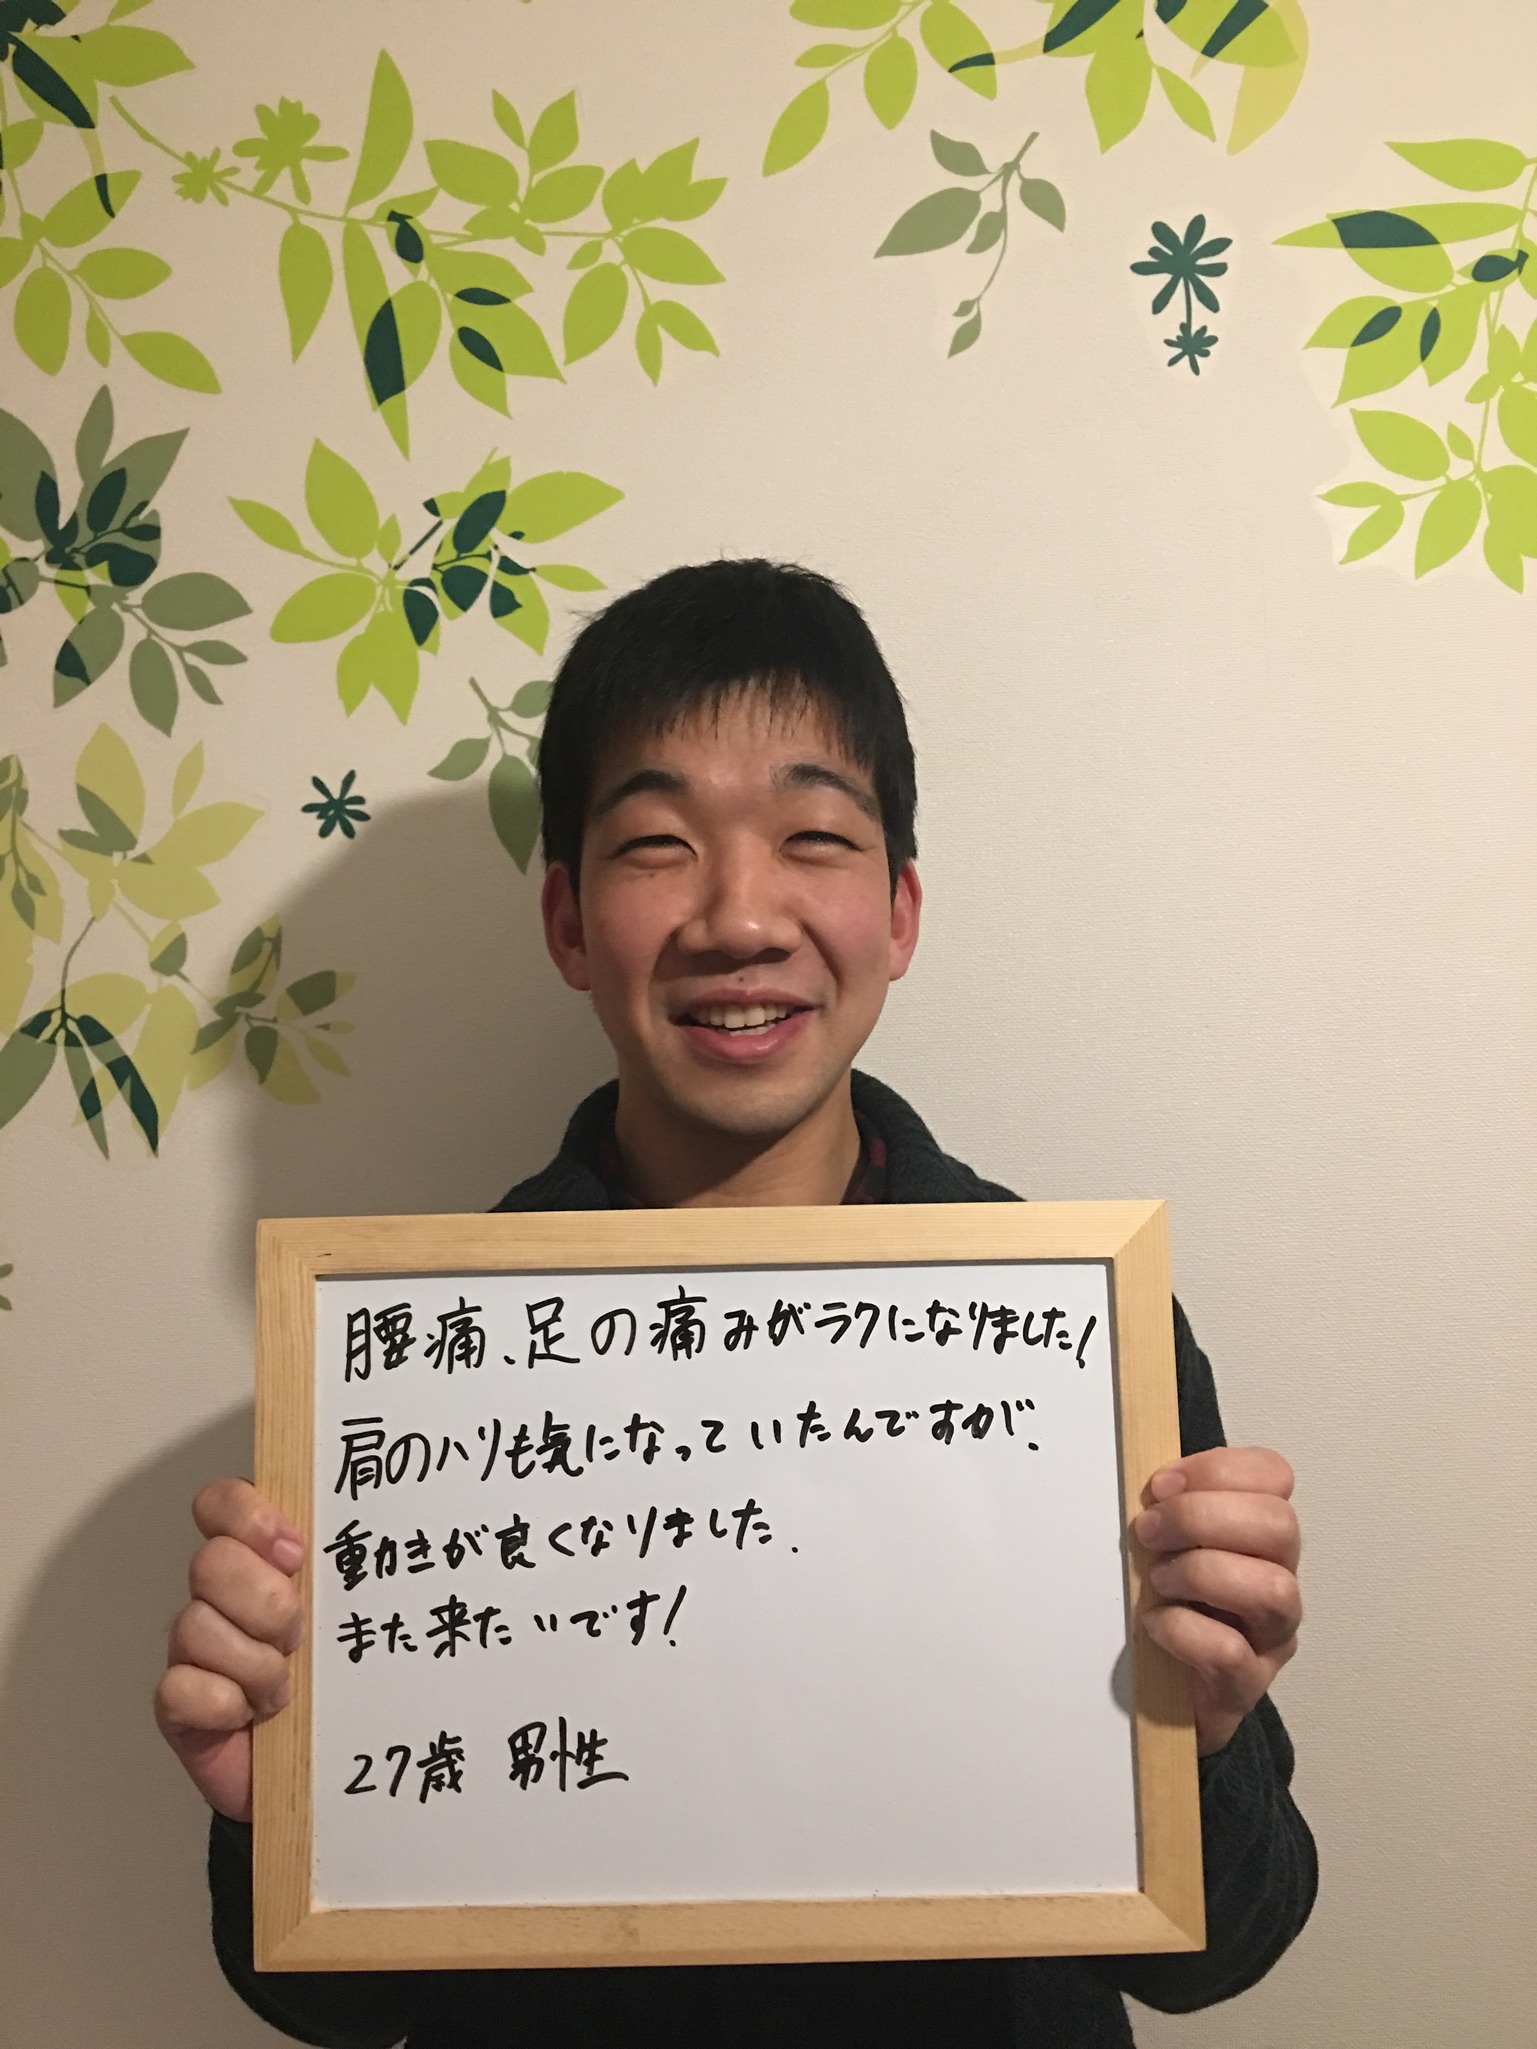 腰痛、足の痛みがラクになりました!
肩のハリも気になっていたんですが、
動きが良くなりました.
また来たいです!
27歳 男性